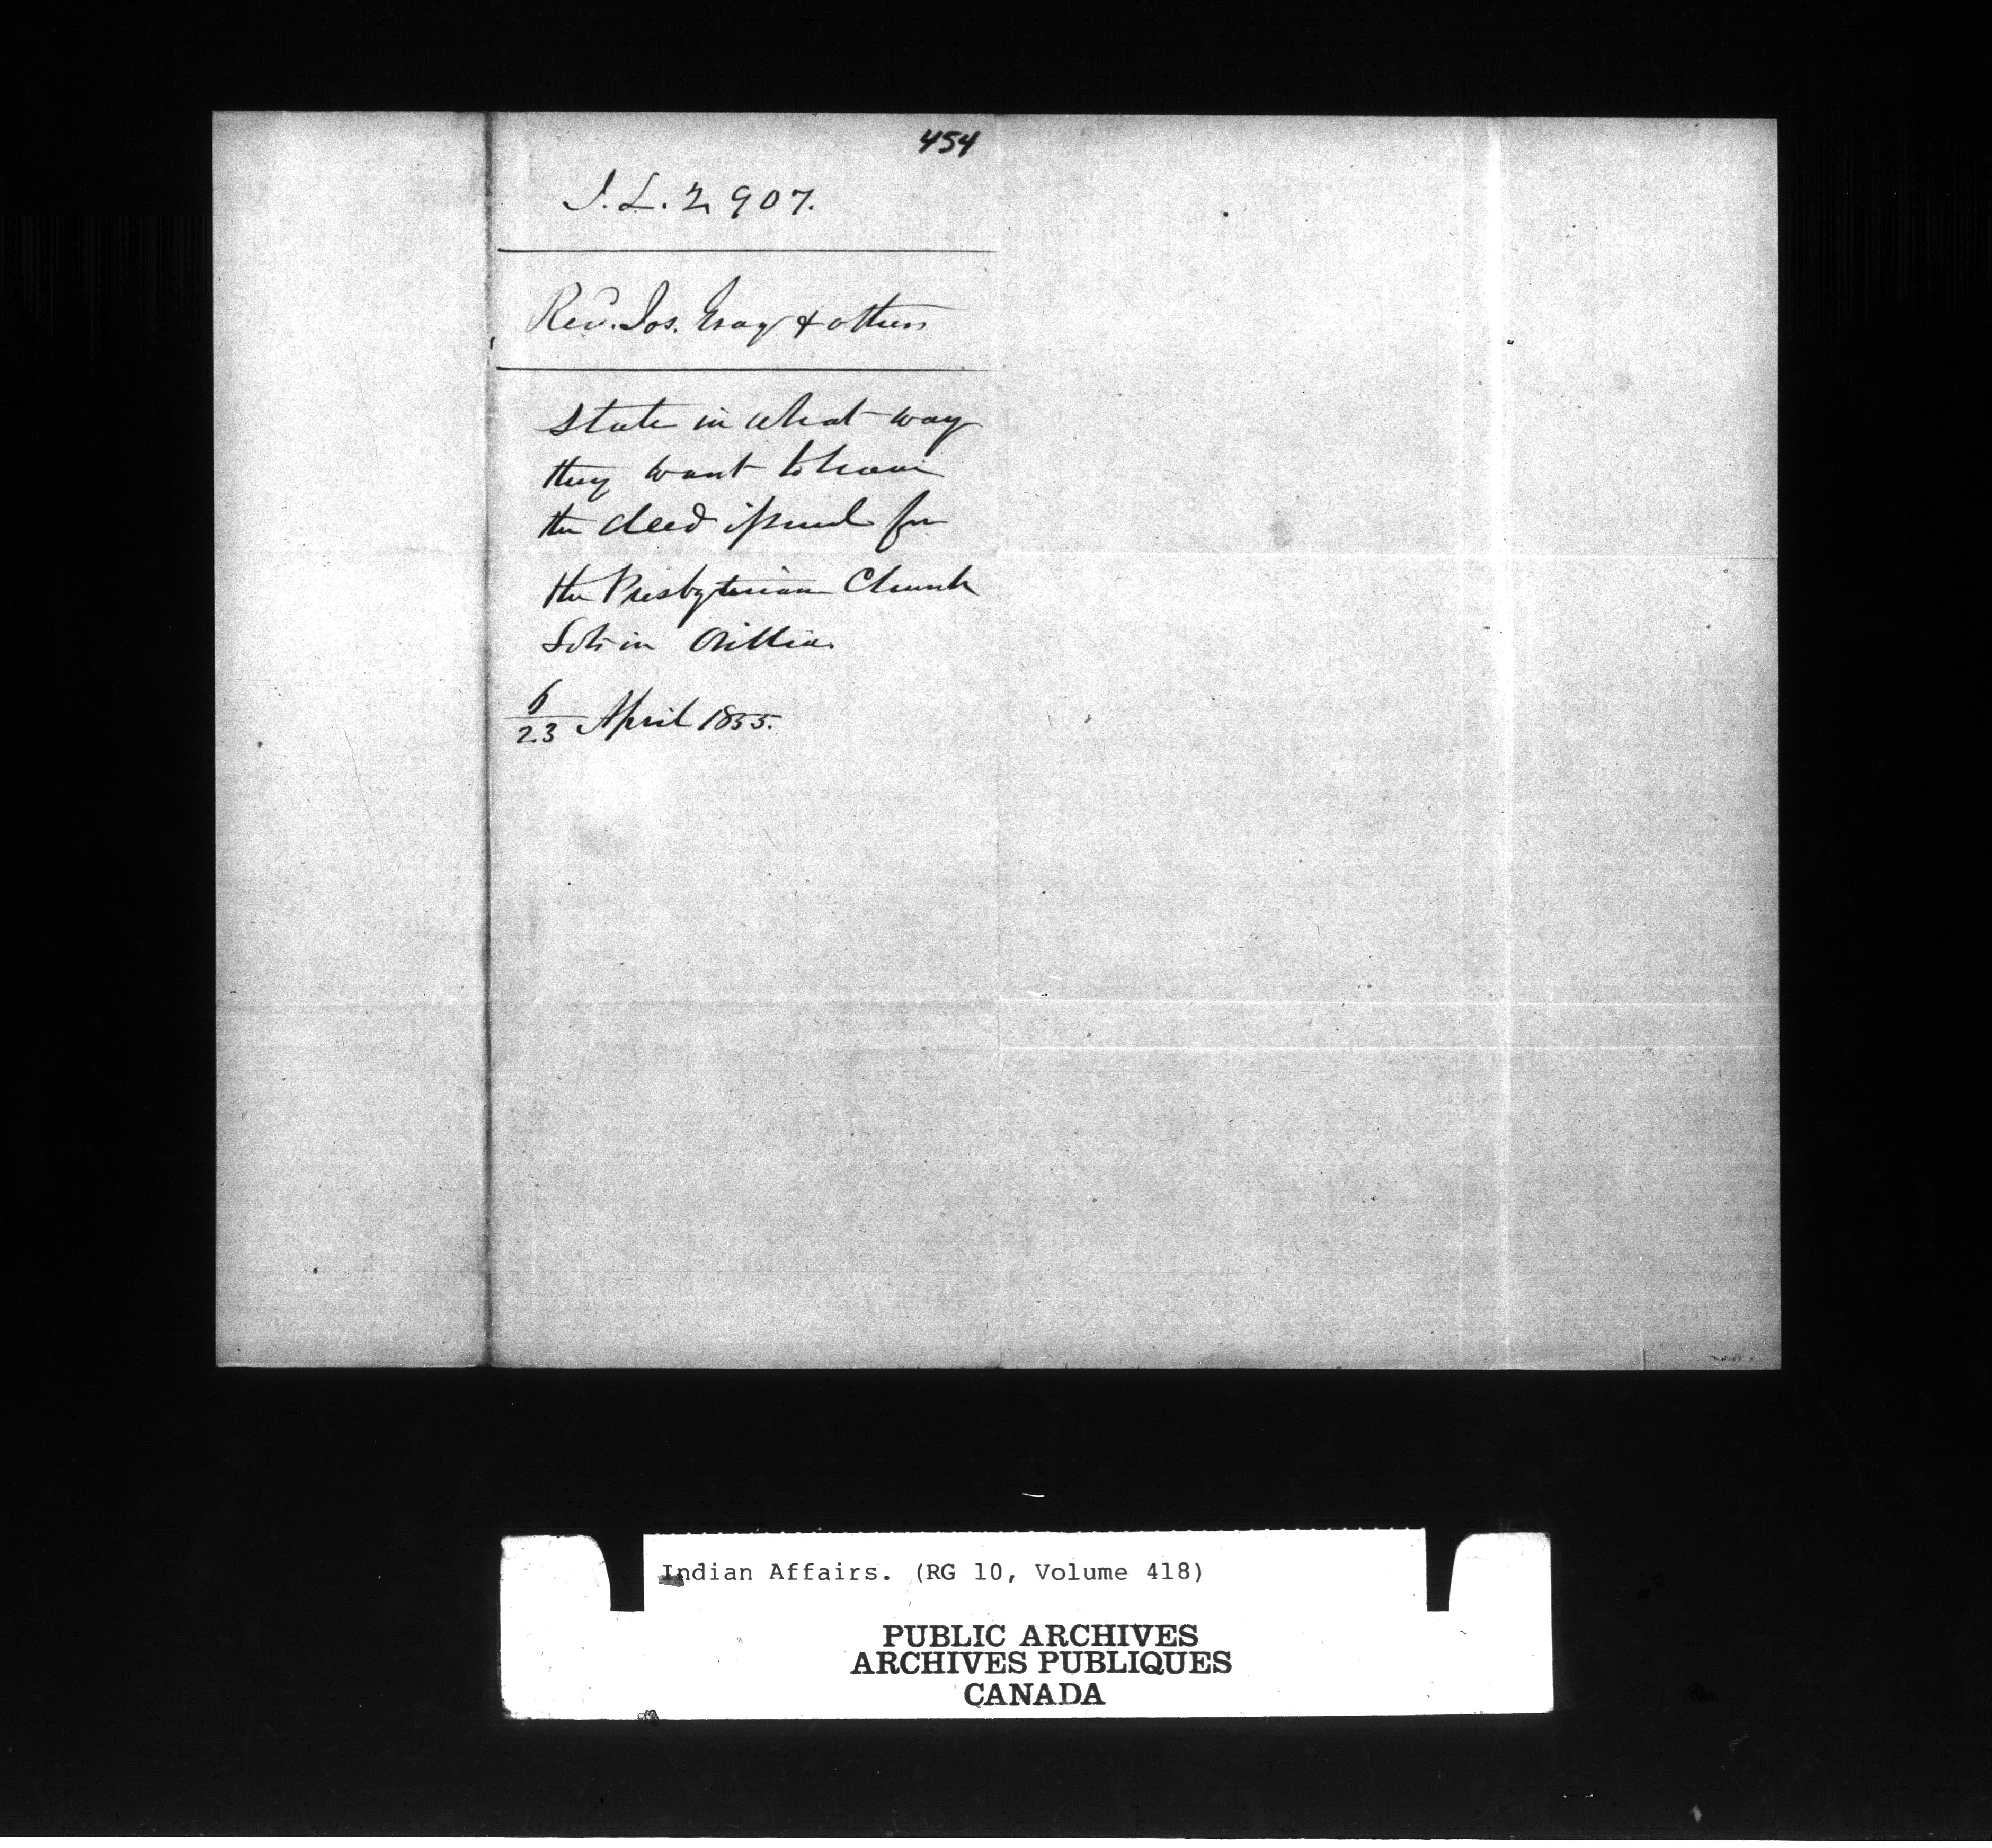 454
I. L. 2907.
Rev. Jos. Gray & others
state in what way
they want to have
the deed issued for
the Presbyterian Church
Lots in Orillia.
6
23 April 1855.
Indian Affairs. (RG 10, Volume 418)
PUBLIC ARCHIVES
ARCHIVES PUBLIQUES
CANADA